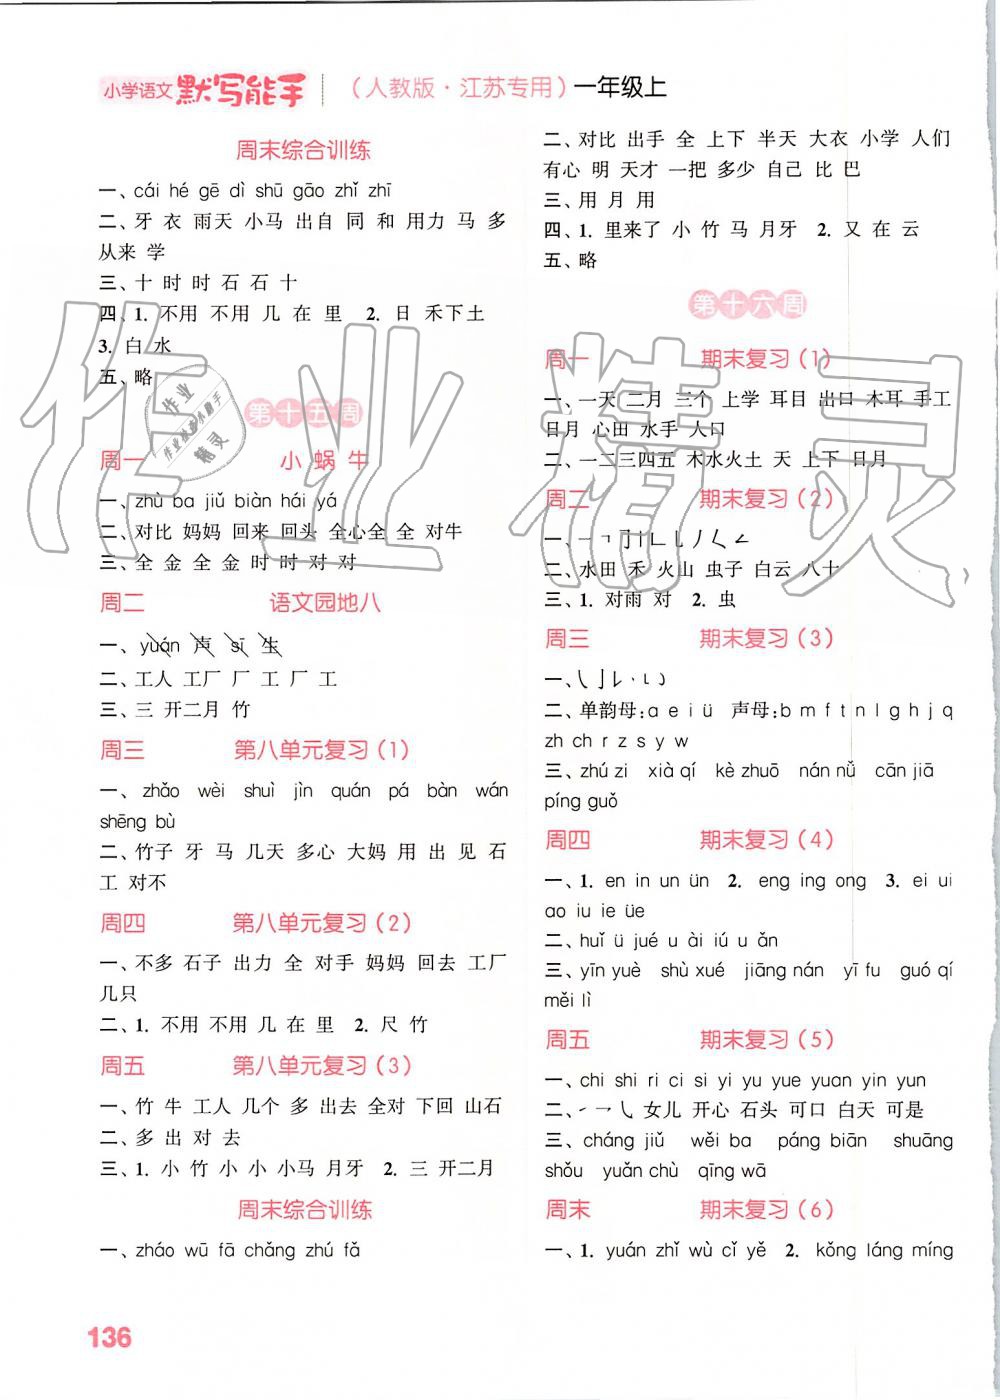 小学语文 默写能手 （人教版·江苏专用）一年级上
周末综合训练
一、cái hé gē dì shū gāo zhǐ zhī
二、牙 衣 雨天 小马 出自 同 和 用力 马 多
从来 学
三、十 时 时 石 石 十
四、1. 不用 不用 几 在 里 2. 日 禾下土
3. 白 水
五、略
第十五周
周一 小蜗牛
一、zhù ba jiǔ biàn hái yá
二、对比 妈妈 回来 回头 全心全 全 对牛
三、全 金 全 金 时 时 对 对
周二 语文园地八
一、yuán 声 sī 生
二、工人 工厂 厂 工 厂 工
三、三 开二月 竹
周三 第八单元复习（1）
一、zhǎo wèi shuì jìn quán pá bàn wán
shēng bù
二、竹子 牙 马 几天 多心 大妈 用 出 见 石
工 对不
周四 第八单元复习（2）
一、不多 石子 出力 全 对手 妈妈 回去 工厂
几只
二、1. 不用 不用 几 在 里 2. 尺 竹
周五 第八单元复习（3）
一、竹 牛 工人 几个 多 出去 全对 下回 山石
二、多 出 对 去
三、1. 小 竹 小 小 小马 月牙 2. 三 开二月
周末综合训练
一、zháo wū fā chǎng zhú fǎ
二、对比 出手 全 上下 半天 大衣 小学 人们
有心 明 天才 一把 多少 自己 比 巴
三、用 月 用
四、1. 里来了 小 竹 马 月牙 2. 又 在 云
五、略
第十六周
周一 期末复习（1）
一、一天 二月 三个 上学 耳目 出口 木耳 手工
日月 心田 水手 人口
二、一二三四五 木水火土 天 上下 日月
周二 期末复习（2）
二、水田 禾 火山 虫子 白云 八十
三、1. 对雨 对 2. 虫
周三 期末复习（3）
二、单韵母：a e i ü 声母：b m f t n l g h j q
zh ch r z s y w
三、zhú zi xià qí kè zhuō nán nǚ cān jiā
píng guǒ
周四 期末复习（4）
一、1. en in un ün 2. eng ing ong 3. ei ui
ao iu ie üe
二、huǐ ü jué u ài iú u ǎn
三、yīn yuè shù xué jiāng nán yī fu guó qí
měi lì
周五 期末复习（5）
一、chi shi ri ci si yi yu yue yuan yin yun
二、㇀ ㇖ ㇂ 女儿 开心 石头 可口 白天 可是
三、cháng jiǔ wěi ba páng biān shuāng
shǒu yuǎn chù qīng wā
周末 期末复习（6）
一、1. yuán zhǐ wù cǐ yě 2. kǒng láng míng
136
作业精灵